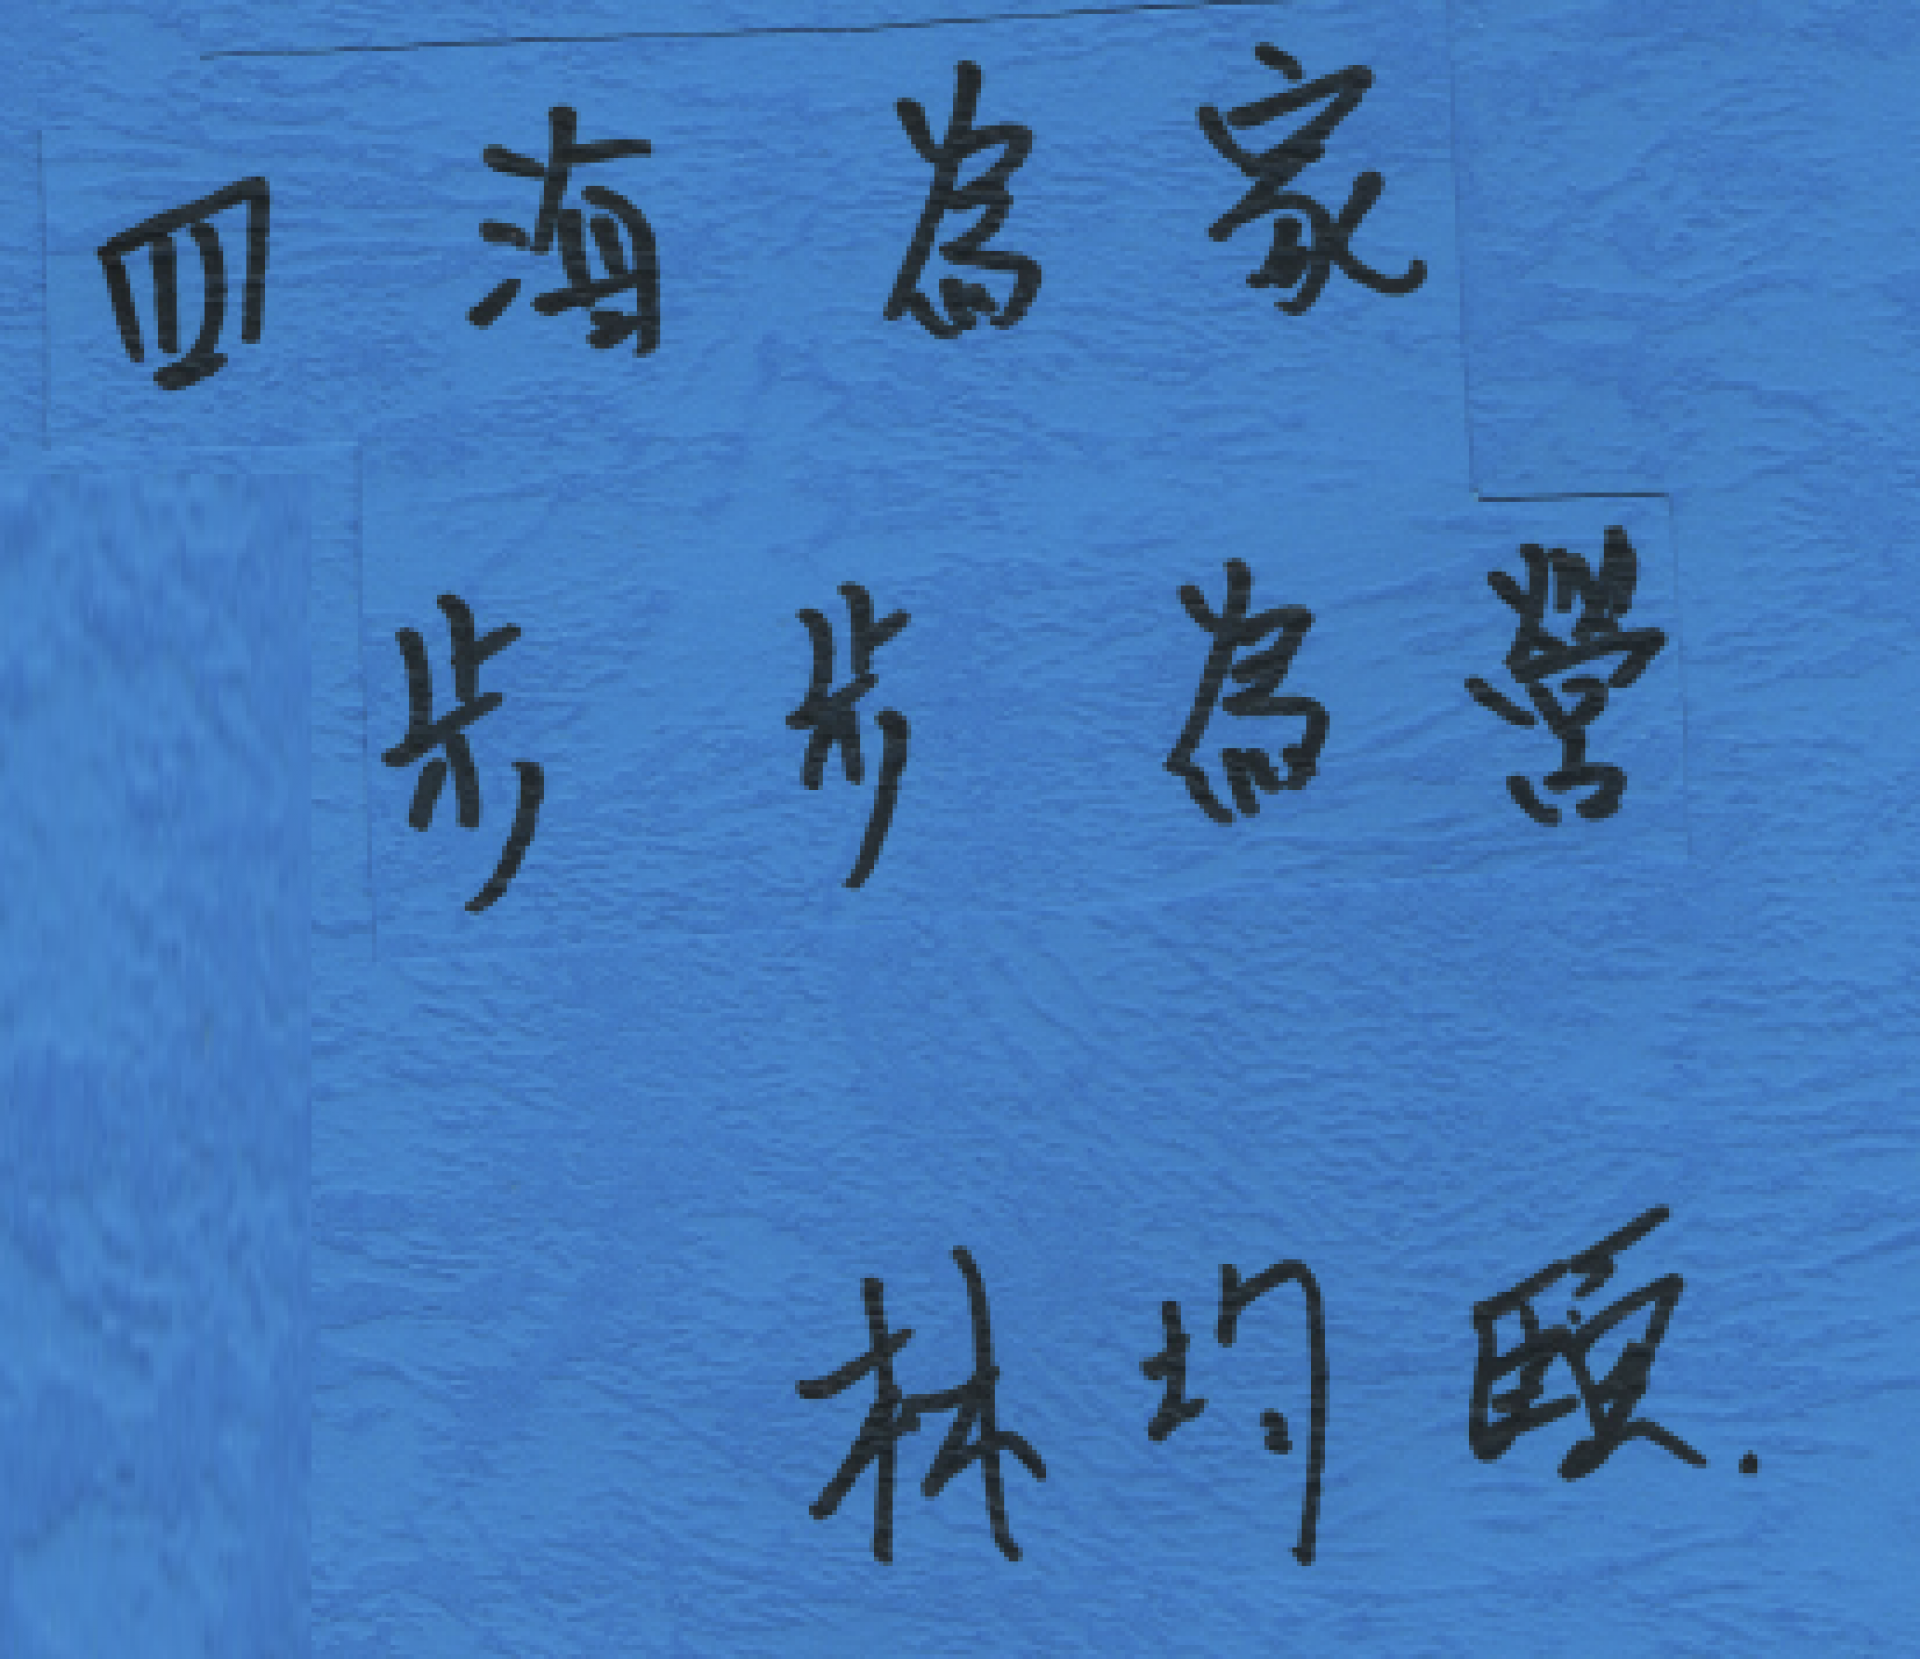 四海為家
步步為營
林均頤.